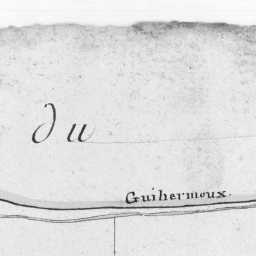 du
Guihermoux.